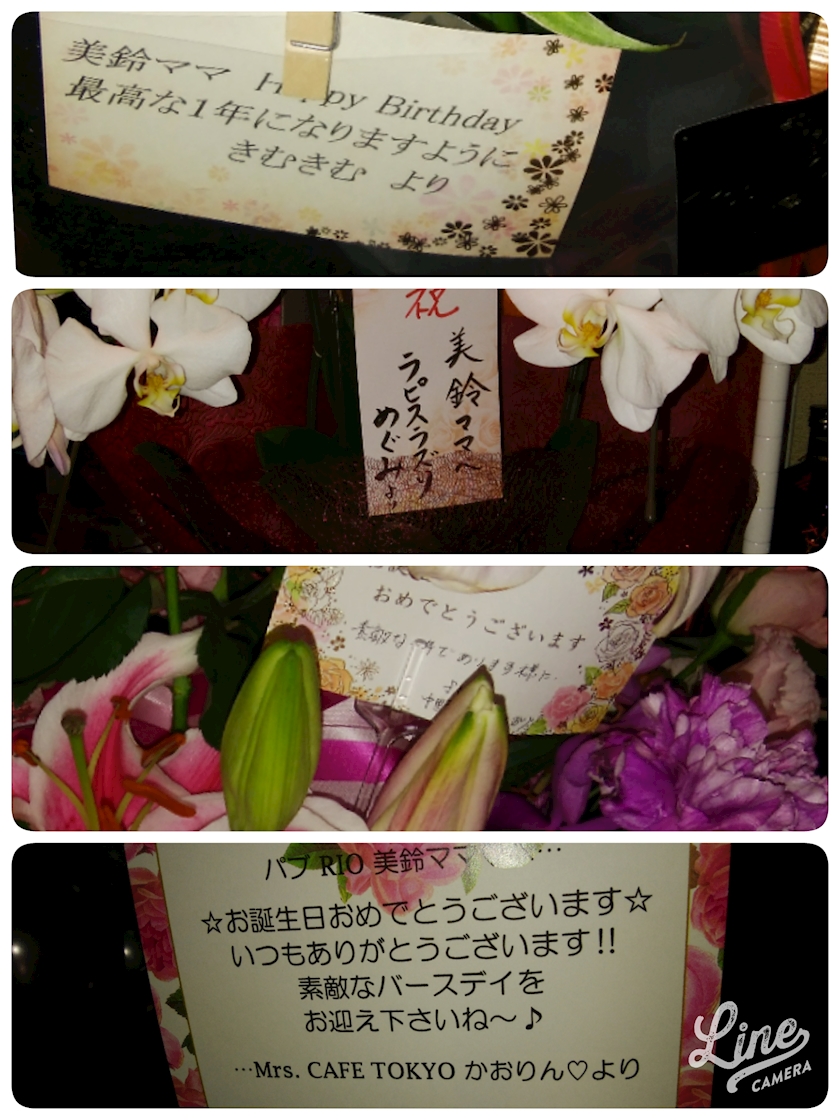 美鈴ママ Happy Birthday
最高な1年になりますように
きむきむ より
祝
美鈴ママへ
ラピスラズリ
めぐみより
おめでとうございます
素敵な
あります様に
パブ RIO 美鈴ママ
☆お誕生日おめでとうございます☆
いつもありがとうございます!!
素敵なバースデイを
お迎え下さいね〜♪
…Mrs. CAFE TOKYO かおりん♡より
Line
CAMERA